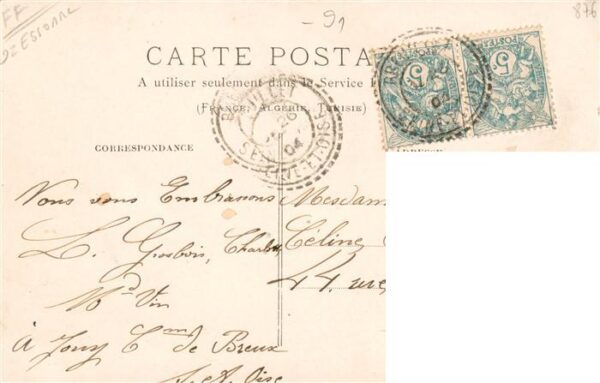 FF
= Essonne
- 91
876
CARTE POSTA
A utiliser seulement dans le Service
(FRANCE, ALGÉRIE, TUNISIE)
CORRESPONDANCE
26
04
SEINE-ET-OISE
5
5
Vous vous Embrassons
L. Grosbois, Charles
Md Vin
à Jouy Cne de Breux
S. et Oise
Mesdam
Céline
44, rue